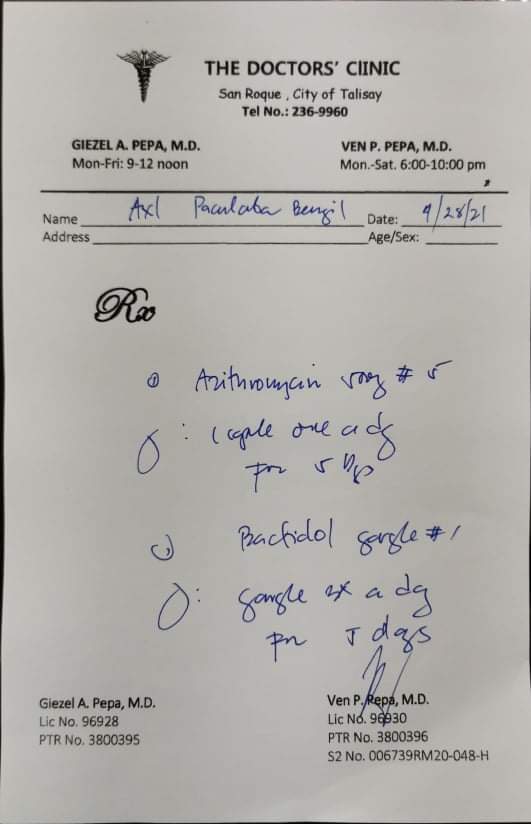 THE DOCTORS' ClINIC
San Roque , City of Talisay
Tel No.: 236-9960
GIEZEL A. PEPA, M.D. VEN P. PEPA, M.D.
Mon-Fri: 9-12 noon Mon.-Sat. 6:00-10:00 pm
Name Axl Date: 9/28/21
Address Age/Sex:
Rx
① Azithromycin 500mg # 5
: 1 capsule once a day
for 5 days
Bactidol gargle # 1
: gargle a day
for 5 days
Giezel A. Pepa, M.D. Ven P. Pepa, M.D.
Lic No. 96928 Lic No. 96930
PTR No. 3800395 PTR No. 3800396
S2 No. 006739RM20-048-H